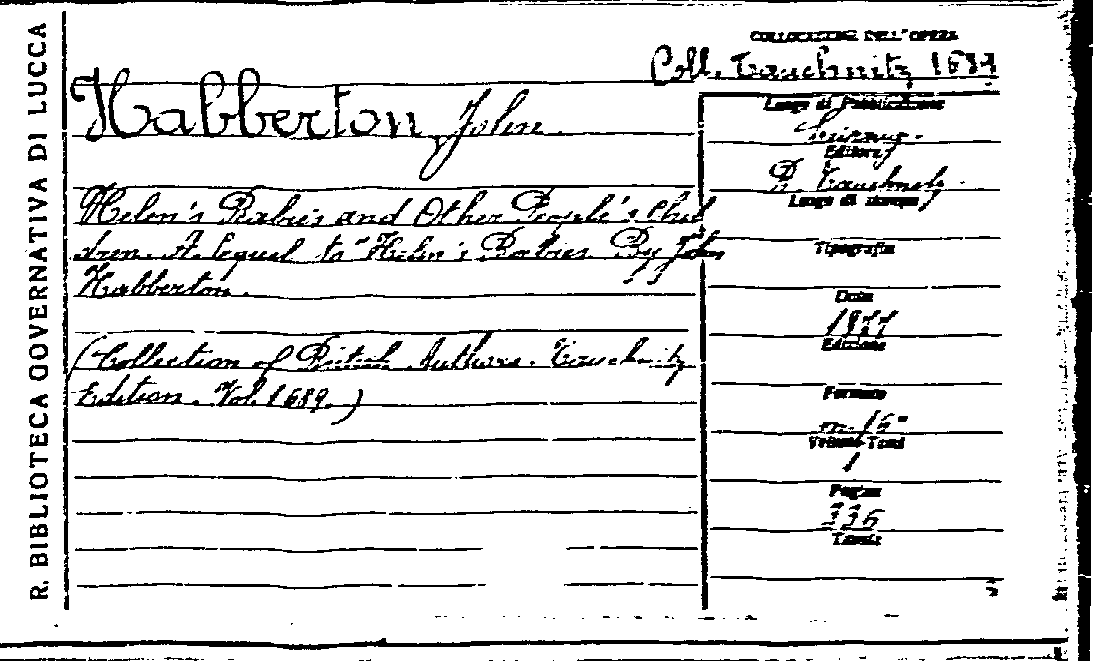 R. BIBLIOTECA GOVERNATIVA DI LUCCA
COLLOCAZIONE DELL'OPERA
Coll. Tauchnitz 1689
Habberton, John.
Helen's Babies and Other People's Chil
dren. A Sequel to "Helen's Babies. By John
Habberton.
(Collection of British Authors. Tauchnitz
Edition. Vol. 1689.)
Luogo di Pubblicazione
Editore
B. Tauchnitz.
Luogo di stampa
Tipografia
Data
1877
Edizione
Formato
in-16°
Volumi-Tomi
1
Pagine
336
Tavole